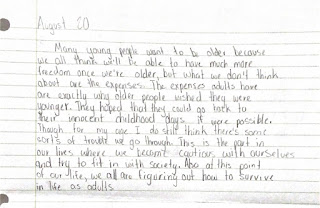 August 20
Many young people want to be older because
we all think we'll be able to have much more
freedom once we're older, but what we don't think
about are the expenses. The expenses adults have
are exactly why older people wished they were
younger. They hoped that they could go back to
their innocent childhood days, if were possible.
Though for my age I do still think there's some
sorts of trouble we go through. This is the part in
our lives where we become cautious with ourselves
and try to fit in with society. Also at this point
of our life, we all are figuring out how to survive
in life as adults